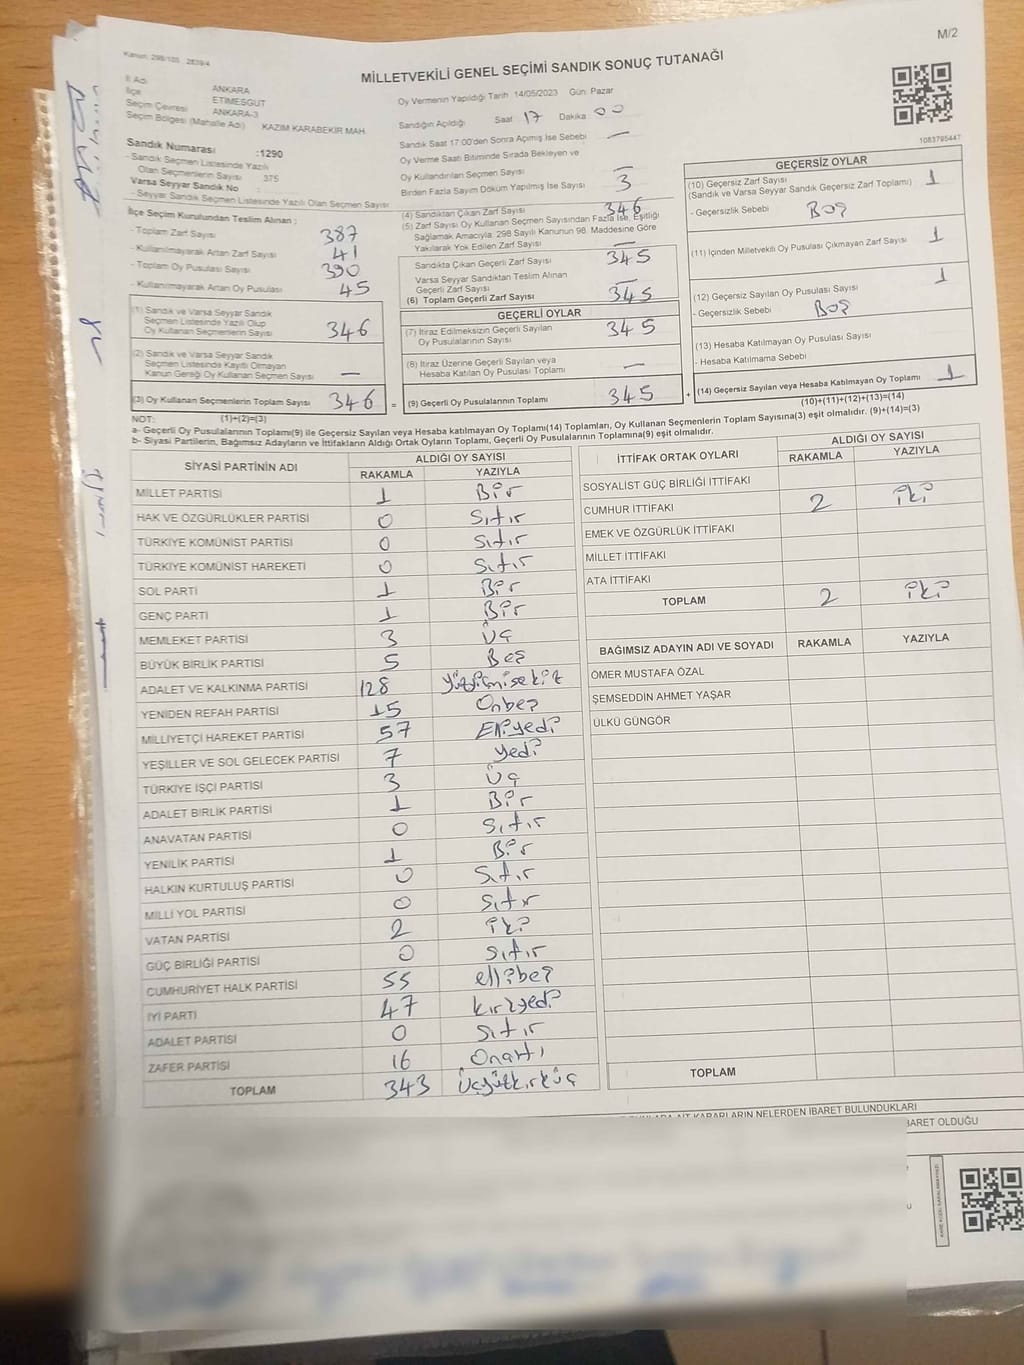 M/2
Kanun: 298/105 , 2839/4
MİLLETVEKİLİ GENEL SEÇİMİ SANDIK SONUÇ TUTANAĞI
İl Adı ANKARA
İlçe ETİMESGUT
Seçim Çevresi ANKARA-3
Seçim Bölgesi (Mahalle Adı) KAZIM KARABEKİR MAH.
Sandık Numarası :1290
- Sandık Seçmen Listesinde Yazılı
Olan Seçmenlerin Sayısı 375
Varsa Seyyar Sandık No :
- Seyyar Sandık Seçmen Listesinde Yazılı Olan Seçmen Sayısı
Oy Vermenin Yapıldığı Tarih 14/05/2023 Gün Pazar
Sandığın Açıldığı Saat 17 Dakika 00
Sandık Saat 17:00'den Sonra Açımış İse Sebebi —
Oy Verme Saati Bitiminde Sırada Bekleyen ve
Oy Kullandırılan Seçmen Sayısı —
Birden Fazla Sayım Döküm Yapılmış İse Sayısı 3
1083795447
İlçe Seçim Kurulundan Teslim Alınan ;
- Toplam Zarf Sayısı 387
- Kullanılmayarak Artan Zarf Sayısı 41
- Toplam Oy Pusulası Sayısı 390
- Kullanılmayarak Artan Oy Pusulası 45
(1) Sandık ve Varsa Seyyar Sandık
Seçmen Listesinde Yazılı Olup
Oy Kullanan Seçmenlerin Sayısı 346
(2) Sandık ve Varsa Seyyar Sandık
Seçmen Listesinde Kayıtlı Olmayan
Kanun Gereği Oy Kullanan Seçmen Sayısı —
(3) Oy Kullanan Seçmenlerin Toplam Sayısı 346 =
(1)+(2)=(3)
(4) Sandıktan Çıkan Zarf Sayısı 346
(5) Zarf Sayısı Oy Kullanan Seçmen Sayısından Fazla İse, Eşitliği
Sağlamak Amacıyla; 298 Sayılı Kanunun 98. Maddesine Göre
Yakılarak Yok Edilen Zarf Sayısı —
Sandıkta Çıkan Geçerli Zarf Sayısı 345
Varsa Seyyar Sandıktan Teslim Alınan
Geçerli Zarf Sayısı —
(6) Toplam Geçerli Zarf Sayısı 345
GEÇERLİ OYLAR
(7) İtiraz Edilmeksizin Geçerli Sayılan
Oy Pusulalarının Sayısı 345
(8) İtiraz Üzerine Geçerli Sayılan veya
Hesaba Katılan Oy Pusulası Toplamı —
(9) Geçerli Oy Pusulalarının Toplamı 345 +
GEÇERSİZ OYLAR
(10) Geçersiz Zarf Sayısı
(Sandık ve Varsa Seyyar Sandık Geçersiz Zarf Toplamı) 1
- Geçersizlik Sebebi Boş
(11) İçinden Milletvekili Oy Pusulası Çıkmayan Zarf Sayısı 1
(12) Geçersiz Sayılan Oy Pusulası Sayısı 1
- Geçersizlik Sebebi Boş
(13) Hesaba Katılmayan Oy Pusulası Sayısı
- Hesaba Katılmama Sebebi
(14) Geçersiz Sayılan veya Hesaba Katılmayan Oy Toplamı 1
(10)+(11)+(12)+(13)=(14)
NOT:
a- Geçerli Oy Pusulalarının Toplamı(9) ile Geçersiz Sayılan veya Hesaba katılmayan Oy Toplamı(14) Toplamları, Oy Kullanan Seçmenlerin Toplam Sayısına(3) eşit olmalıdır. (9)+(14)=(3)
b- Siyasi Partilerin, Bağımsız Adayların ve İttifakların Aldığı Ortak Oyların Toplamı, Geçerli Oy Pusulalarının Toplamına(9) eşit olmalıdır.
SİYASİ PARTİNİN ADI ALDIĞI OY SAYISI
RAKAMLA YAZIYLA
MİLLET PARTİSİ 1 Bir
HAK VE ÖZGÜRLÜKLER PARTİSİ 0 Sıfır
TÜRKİYE KOMÜNİST PARTİSİ 0 Sıfır
TÜRKİYE KOMÜNİST HAREKETİ 0 Sıfır
SOL PARTİ 1 Bir
GENÇ PARTİ 1 Bir
MEMLEKET PARTİSİ 3 Üç
BÜYÜK BİRLİK PARTİSİ 5 Beş
ADALET VE KALKINMA PARTİSİ 128 Yüzyirmisekiz
YENİDEN REFAH PARTİSİ 15 Onbeş
MİLLİYETÇİ HAREKET PARTİSİ 57 Elliyedi
YEŞİLLER VE SOL GELECEK PARTİSİ 7 yedi
TÜRKİYE İŞÇİ PARTİSİ 3 Üç
ADALET BİRLİK PARTİSİ 1 Bir
ANAVATAN PARTİSİ 0 Sıfır
YENİLİK PARTİSİ 1 Bir
HALKIN KURTULUŞ PARTİSİ 0 Sıfır
MİLLİ YOL PARTİSİ 0 Sıfır
VATAN PARTİSİ 2 iki
GÜÇ BİRLİĞİ PARTİSİ 0 Sıfır
CUMHURİYET HALK PARTİSİ 55 ellibeş
İYİ PARTİ 47 kırkyedi
ADALET PARTİSİ 0 Sıfır
ZAFER PARTİSİ 16 Onaltı
TOPLAM 343 Üçyüzkırküç
İTTİFAK ORTAK OYLARI ALDIĞI OY SAYISI
RAKAMLA YAZIYLA
SOSYALİST GÜÇ BİRLİĞİ İTTİFAKI
CUMHUR İTTİFAKI 2 iki
EMEK VE ÖZGÜRLÜK İTTİFAKI
MİLLET İTTİFAKI
ATA İTTİFAKI
TOPLAM 2 iki
BAĞIMSIZ ADAYIN ADI VE SOYADI RAKAMLA YAZIYLA
ÖMER MUSTAFA ÖZAL
ŞEMSEDDİN AHMET YAŞAR
ÜLKÜ GÜNGÖR
TOPLAM
KARARLARIN NELERDEN İBARET BULUNDUKLARI
BARET OLDUĞU